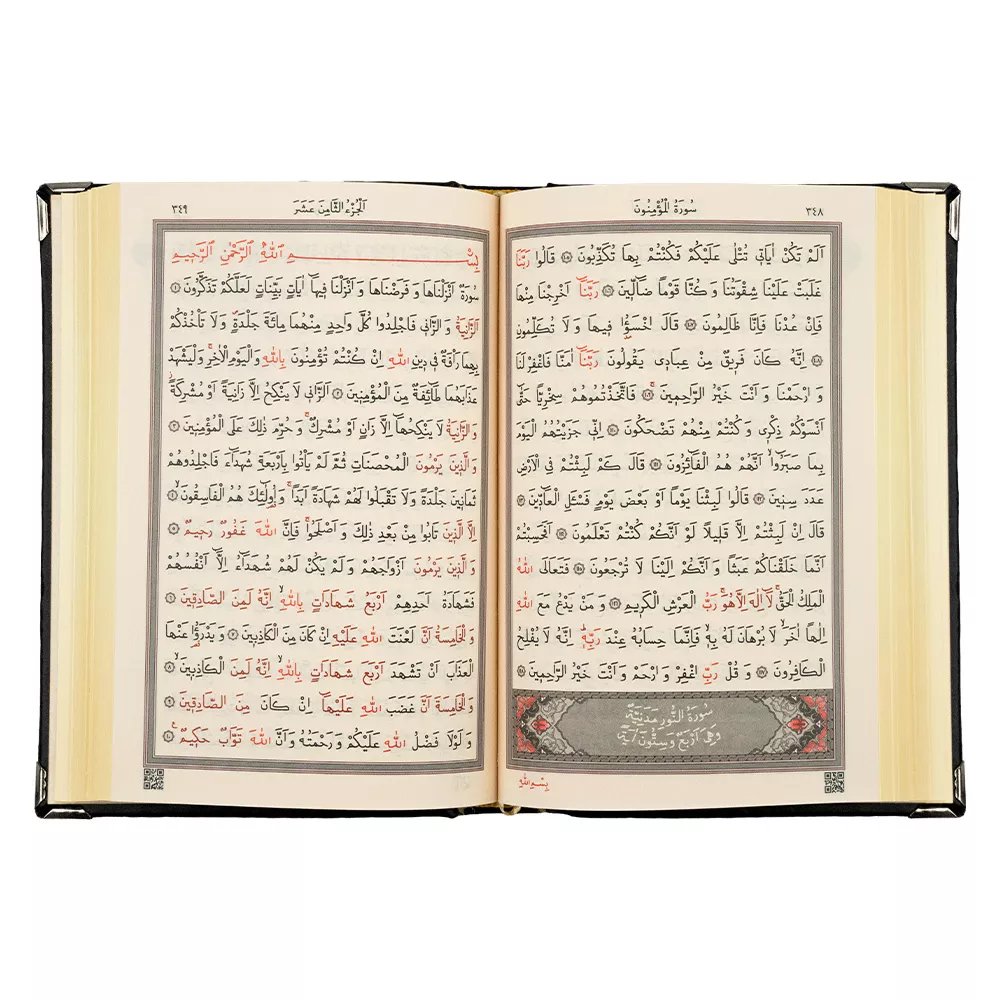 سُورَةُ الْمُؤْمِنُونَ
٣٤٨
اَلَمْ تَكُنْ اٰيَاتٖي تُتْلٰى عَلَيْكُمْ فَكُنْتُمْ بِهَا تُكَذِّبُونَ ١٠٥ قَالُوا رَبَّنَا
غَلَبَتْ عَلَيْنَا شِقْوَتُنَا وَكُنَّا قَوْمًا ضَٓالّٖينَ ١٠٦ رَبَّنَٓا اَخْرِجْنَا مِنْهَا
فَاِنْ عُدْنَا فَاِنَّا ظَالِمُونَ ١٠٧ قَالَ اخْسَؤُ۫ا فٖيهَا وَ لَا تُكَلِّمُونِ
١٠٨ اِنَّهُ كَانَ فَرٖيقٌ مِنْ عِبَادٖي يَقُولُونَ رَبَّنَٓا اٰمَنَّا فَاغْفِرْ لَنَا
وَ ارْحَمْنَا وَ اَنْتَ خَيْرُ الرَّاحِمٖينَ ١٠٩ فَاتَّخَذْتُمُوهُمْ سِخْرِيًّا حَتّٰٓى
اَنْسَوْكُمْ ذِكْرٖي وَ كُنْتُمْ مِنْهُمْ تَضْحَكُونَ ١١٠ اِنّٖي جَزَيْتُهُمُ الْيَوْمَ
بِمَا صَبَرُٓوا اَنَّهُمْ هُمُ الْفَٓائِزُونَ ١١١ قَالَ كَمْ لَبِثْتُمْ فِي الْاَرْضِ
عَدَدَ سِنٖينَ ١١٢ قَالُوا لَبِثْنَا يَوْمًا اَوْ بَعْضَ يَوْمٍ فَسْـَٔلِ الْعَٓادّٖينَ ١١٣
قَالَ اِنْ لَبِثْتُمْ اِلَّا قَلٖيلًا لَوْ اَنَّكُمْ كُنْتُمْ تَعْلَمُونَ ١١٤ اَفَحَسِبْتُمْ
اَنَّمَا خَلَقْنَاكُمْ عَبَثًا وَ اَنَّكُمْ اِلَيْنَا لَا تُرْجَعُونَ ١١٥ فَتَعَالَى اللّٰهُ
الْمَلِكُ الْحَقُّ لَٓا اِلٰهَ اِلَّا هُوَ رَبُّ الْعَرْشِ الْكَرٖيمِ ١١٦ وَ مَنْ يَدْعُ مَعَ اللّٰهِ
اِلٰهًا اٰخَرَ لَا بُرْهَانَ لَهُ بِهٖ فَاِنَّمَا حِسَابُهُ عِنْدَ رَبِّهٖ اِنَّهُ لَا يُفْلِحُ
الْكَافِرُونَ ١١٧ وَ قُلْ رَبِّ اغْفِرْ وَ ارْحَمْ وَ اَنْتَ خَيْرُ الرَّاحِمٖينَ ١١٨
سُورَةُ النُّورِ مَدَنِيَّةٌ
وَهِيَ اَرْبَعٌ وَسِتُّونَ اٰيَةً
بِسْمِ اللّٰهِ
اَلْجُزْءُ الثَّامِنَ عَشَرَ
٣٤٩
بِسْمِ اللّٰهِ الرَّحْمٰنِ الرَّحٖيمِ
سُورَةٌ اَنْزَلْنَاهَا وَ فَرَضْنَاهَا وَ اَنْزَلْنَا فٖيهَٓا اٰيَاتٍ بَيِّنَاتٍ لَعَلَّكُمْ تَذَكَّرُونَ ١
اَلزَّانِيَةُ وَ الزَّانٖي فَاجْلِدُوا كُلَّ وَاحِدٍ مِنْهُمَا مِائَةَ جَلْدَةٍ وَ لَا تَأْخُذْكُمْ
بِهِمَا رَأْفَةٌ فٖي دٖينِ اللّٰهِ اِنْ كُنْتُمْ تُؤْمِنُونَ بِاللّٰهِ وَالْيَوْمِ الْاٰخِرِ وَلْيَشْهَدْ
عَذَابَهُمَا طَٓائِفَةٌ مِنَ الْمُؤْمِنٖينَ ٢ اَلزَّانٖي لَا يَنْكِحُ اِلَّا زَانِيَةً اَوْ مُشْرِكَةً
وَ الزَّانِيَةُ لَا يَنْكِحُهَٓا اِلَّا زَانٍ اَوْ مُشْرِكٌ وَ حُرِّمَ ذٰلِكَ عَلَى الْمُؤْمِنٖينَ ٣
وَ الَّذٖينَ يَرْمُونَ الْمُحْصَنَاتِ ثُمَّ لَمْ يَأْتُوا بِاَرْبَعَةِ شُهَدَٓاءَ فَاجْلِدُوهُمْ
ثَمَانٖينَ جَلْدَةً وَلَا تَقْبَلُوا لَهُمْ شَهَادَةً اَبَدًا وَ اُولٰٓئِكَ هُمُ الْفَاسِقُونَ ٤
اِلَّا الَّذٖينَ تَابُوا مِنْ بَعْدِ ذٰلِكَ وَ اَصْلَحُوا فَاِنَّ اللّٰهَ غَفُورٌ رَحٖيمٌ ٥
وَ الَّذٖينَ يَرْمُونَ اَزْوَاجَهُمْ وَلَمْ يَكُنْ لَهُمْ شُهَدَٓاءُ اِلَّٓا اَنْفُسُهُمْ
فَشَهَادَةُ اَحَدِهِمْ اَرْبَعُ شَهَادَاتٍ بِاللّٰهِ اِنَّهُ لَمِنَ الصَّادِقٖينَ ٦
وَ الْخَامِسَةُ اَنَّ لَعْنَتَ اللّٰهِ عَلَيْهِ اِنْ كَانَ مِنَ الْكَاذِبٖينَ ٧ وَ يَدْرَؤُا عَنْهَا
الْعَذَابَ اَنْ تَشْهَدَ اَرْبَعَ شَهَادَاتٍ بِاللّٰهِ اِنَّهُ لَمِنَ الْكَاذِبٖينَ ٨
وَ الْخَامِسَةَ اَنَّ غَضَبَ اللّٰهِ عَلَيْهَٓا اِنْ كَانَ مِنَ الصَّادِقٖينَ ٩
وَ لَوْلَا فَضْلُ اللّٰهِ عَلَيْكُمْ وَرَحْمَتُهُ وَاَنَّ اللّٰهَ تَوَّابٌ حَكٖيمٌ ١٠